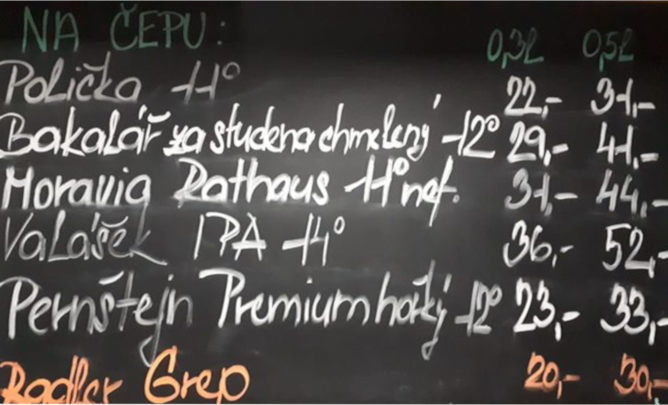 NA ČEPU: 0,3l 0,5l
Polička 11° 22,- 31,-
Bakalář za studena chmelený 12° 29,- 41,-
Moravia Rathaus 11° nef. 31,- 44,-
Valášek IPA 14° 36,- 52,-
Pernštejn Premium hořký 12° 23,- 33,-
Radler Grep 20,- 30,-